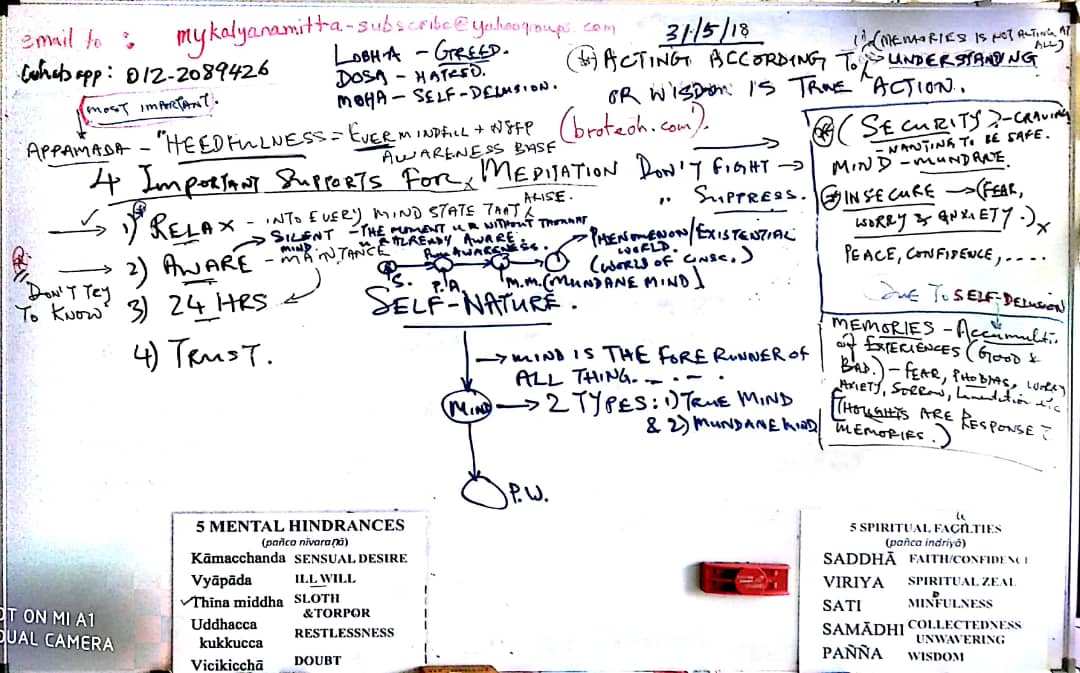 email to : mykalyanamitta-subscribe@yahoogroups.com
Whatsapp : 012-2089426
31/5/18
LOBHA - GREED.
DOSA - HATRED.
MOHA - SELF-DELUSION.
(MEMORIES IS NOT ACTING AT ALL)
ACTING ACCORDING TO UNDERSTANDING
OR WISDOM IS TRUE ACTION.
MOST IMPORTANT.
APPAMADA - "HEEDFULLNESS = EVER MINDFULL + NSFP
AWARENESS BASE
(broteoh.com).
4 IMPORTANT SUPPORTS FOR MEDITATION
DON'T FIGHT →
" SUPPRESS.
1) RELAX - INTO EVERY MIND STATE THAT ARISE.
SILENT MIND - THE MOMENT U R WITHOUT THOUGHT
U R ALREADY AWARE.
PURE AWARENESS.
2) AWARE - MAINTANCE
DON'T TRY TO KNOW
3) 24 HRS
4) TRUST.
S. P.A. M.M. (MUNDANE MIND)
PHENOMENON/EXISTENTIAL
WORLD.
(WORLD OF CONSC.)
SELF-NATURE.
→ MIND IS THE FORE RUNNER OF
ALL THING.......
MIND → 2 TYPES: 1) TRUE MIND
& 2) MUNDANE MIND
P.W.
(SECURITY) - CRAVING
- WANTING TO BE SAFE.
MIND - MUNDANE.
INSECURE → (FEAR,
WORRY & ANXIETY.) x
PEACE, CONFIDENCE, ....
DUE TO SELF-DELUSION
MEMORIES - Accumulti.
of EXPERIENCES (GOOD &
BAD.) - FEAR, PHOBIAS, WORRY
AXIETY, SORROW,
[THOUGHTS ARE RESPONSE
MEMORIES.)
5 MENTAL HINDRANCES
(pañca nivaraṇā)
Kāmacchanda SENSUAL DESIRE
Vyāpāda ILL WILL
✓Thina middha SLOTH
&TORPOR
Uddhacca
kukkucca RESTLESSNESS
Vicikicchā DOUBT
5 SPIRITUAL FACILTIES
u
(pañca indriyā)
SADDHĀ FAITH/CONFIDENCE
VIRIYA SPIRITUAL ZEAL
SATI MINFULNESS
D
SAMĀDHI COLLECTEDNESS
UNWAVERING
PAÑÑA WISDOM
OT ON MI A1
DUAL CAMERA